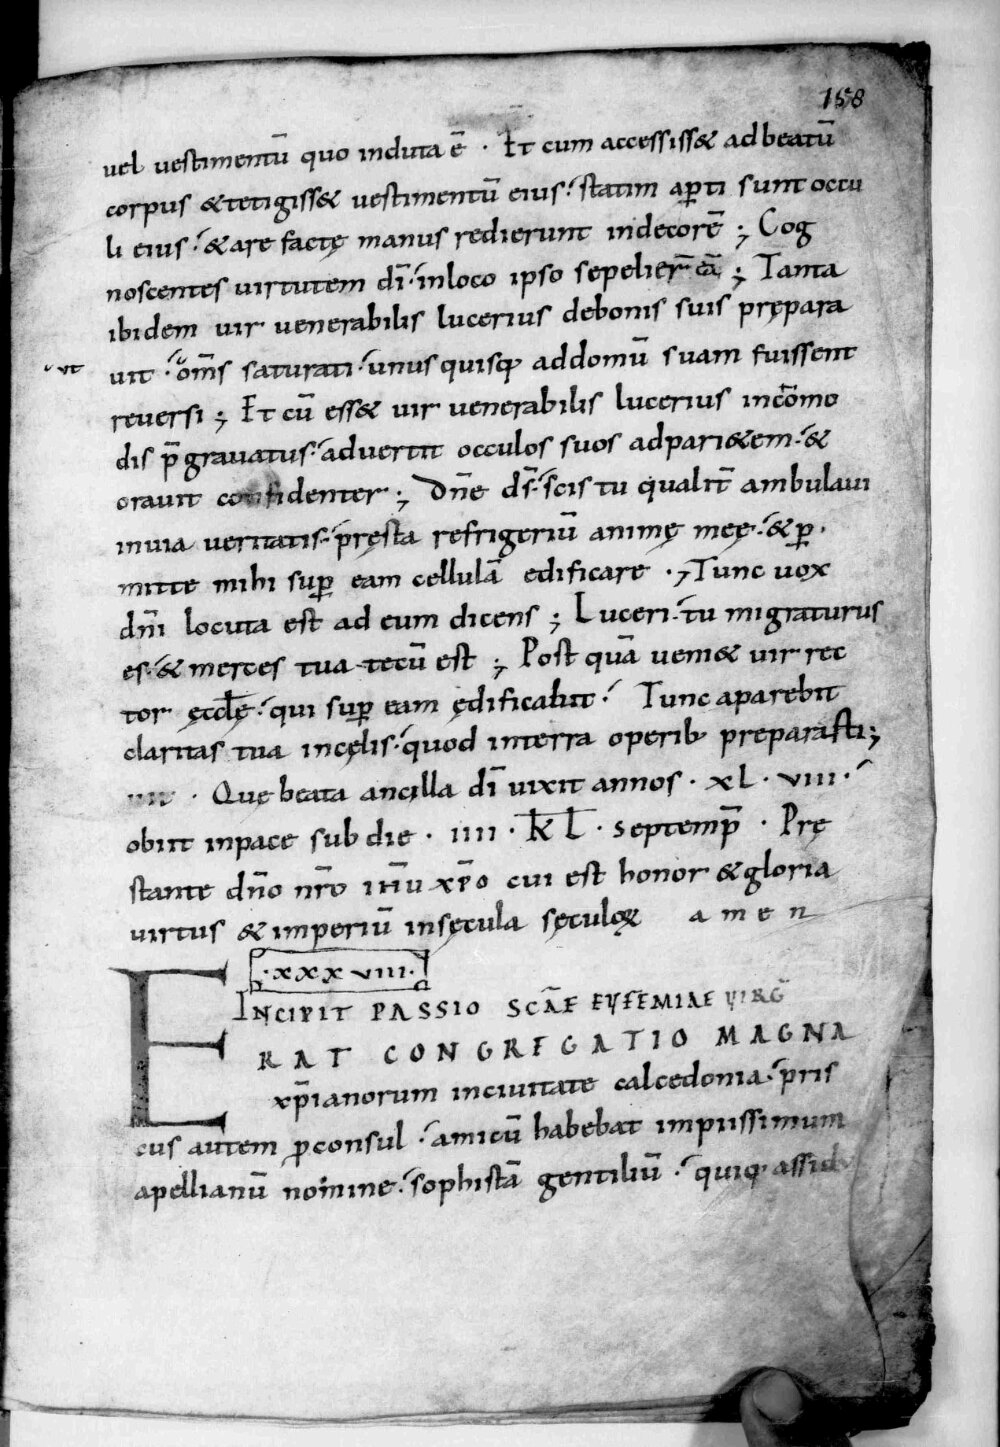 158
uel uestimentū quo induta ē · Et cum accessiss& ad beatū
corpus &tetigiss& uestimentū eius · statim aꝑti sunt occu
li eius · &are factę manus redierunt indecorē ; Cog
noscentes uirtutem dī · inloco ipso sepelier̄ eā ; Tanta
ibidem uir uenerabilis lucerius debonis suis prępara
ut uit · om̄s saturati · unusquisq; addomū suam fuissent
reuersi ; Et cū ess& uir uenerabilis lucerius incōmo
dis p̄grauatus · aduertit occulos suos adpari&em · &
orauit confidenter ; Dn̄e ds̄ · scis tu qualit̄ ambulaui
inuia ueritatis · pręsta refrigeriū animę meę · &ꝑ ·
mitte mihi suꝑ eam cellulā edificare · ; Tunc uox
dn̄i locuta est ad eum dicens ; Luceri · tu migraturus
es · & merces tua tecū est ; Post quā ueni& uir rec
tor ęccłę · qui suꝑ eam ędificabit · Tunc aparebit
claritas tua incęlis · quod interra operib; preparasti ;
· Quę beata ancilla dī uixit annos · xl · viii ·
obiit inpace sub die · iiii · k̄l̄ · septemp̄ · Prę
stante dn̄o nr̄o ih̄u xp̄o cui est honor &gloria
uirtus & imperiū insęcula sęculoꝝ amen
· xxxviii ·
INCIPIT PASSIO SCĀE EUFEMIAE VIRḠ
ERAT CONGREGATIO MAGNA
xp̄ianorum inciuitate calcedonia · pris
cus autem ꝓconsul · amicū habebat impiissimum
apellianū nomine · sophistā gentiliū · quiq;